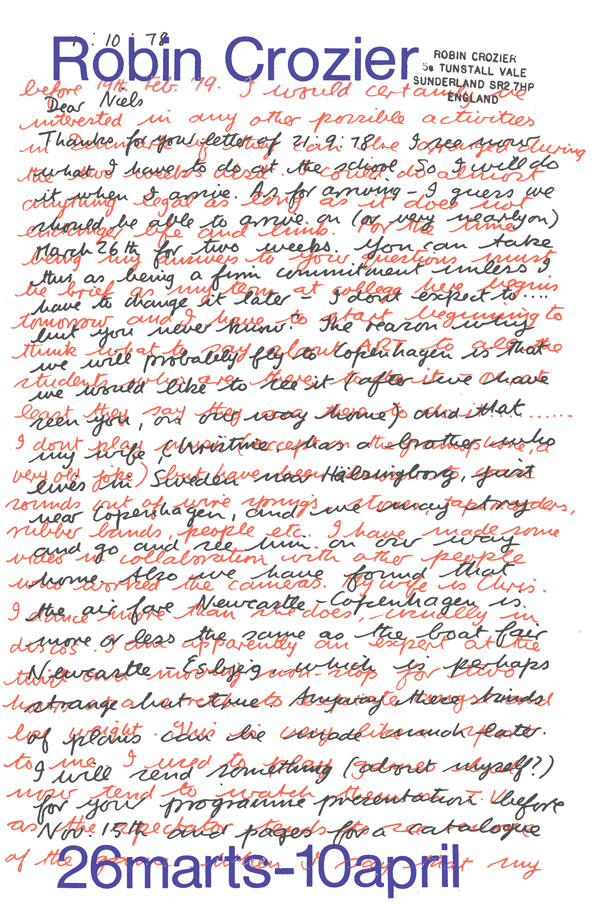 1 : 10 : 78
Robin Crozier
ROBIN CROZIER
5a TUNSTALL VALE
SUNDERLAND SR2 7HP
ENGLAND
Dear Niels
Thanks for your letter of 21:9:78. I see now
what I have to do at the school. So I will do
it when I arrive. As for arriving – I guess we
should be able to arrive on (or very nearly on)
March 26th for two weeks. You can take
this as being a firm commitment unless I
have to change it later – I dont expect to ....
but you never know. The reason why
we will probably fly to Copenhagen is that
we would like to see it (after we have
seen you, on our way home) and that
my wife, Christine, has a brother who
lives in Sweden near Hälsingborg, just
near Copenhagen, and we may try
and go and see him on our way
home. Also we have found that
the air fare Newcastle – Copenhagen is
more or less the same as the boat fair
Newcastle – Esbjerg which is perhaps
strange but true. Anyway these kinds
of plans can be made much later.
I will send something (about myself?)
for your programme presentation before
Nov 15th and pages for a catalogue
before 19th Feb. 79. I would certainly be
interested in any other possible activities
in during
the two weeks almost
anything legal as long as it does not
life and limb. For the time
being my answers to your questions must
be brief as my term at college here begins
tomorrow and I have to start beginning to
think what to say about ART to all the
students who are there
least they say they .......
I dont play (except the gramophone, a
very old joke) but have been
sounds out of wire, tape recorders,
rubber bands, people etc. I have made some
video in collaboration with other people
who worked the cameras. My wife is Chris.
I dance more than she does, usually in
discos. I am apparently an expert at the
non-stop for two
weight. This
to me. I used to play
now tend to watch
as the spectator
of the game. When I say that my
26marts-10april